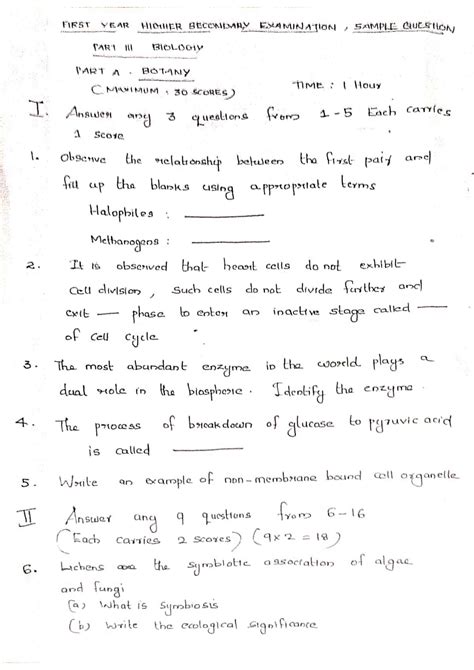 FIRST YEAR HIGHER SECONDARY EXAMINATION, SAMPLE QUESTION
PART III BIOLOGY
PART A. BOTANY
(MAXIMUM : 30 SCORES) TIME : 1 Hour
I. Answer any 3 questions from 1-5 Each carries
1 score
1. Observe the relationship between the first pair and
fill up the blanks using appropriate terms
Halophiles : ———
Methanogens : ———
2. It is observed that heart cells do not exhibit
cell division, such cells do not divide further and
exit — phase to enter an inactive stage called ——
of cell cycle
3. The most abundant enzyme in the world plays a
dual role in the biosphere. Identify the enzyme.
4. The process of breakdown of glucose to pyruvic acid
is called ———
5. Write an example of non-membrane bound cell organelle
II Answer any 9 questions from 6-16
(Each carries 2 scores) (9x2=18)
6. Lichens are the symbiotic association of algae
and fungi
(a) What is symbiosis
(b) Write the ecological significance